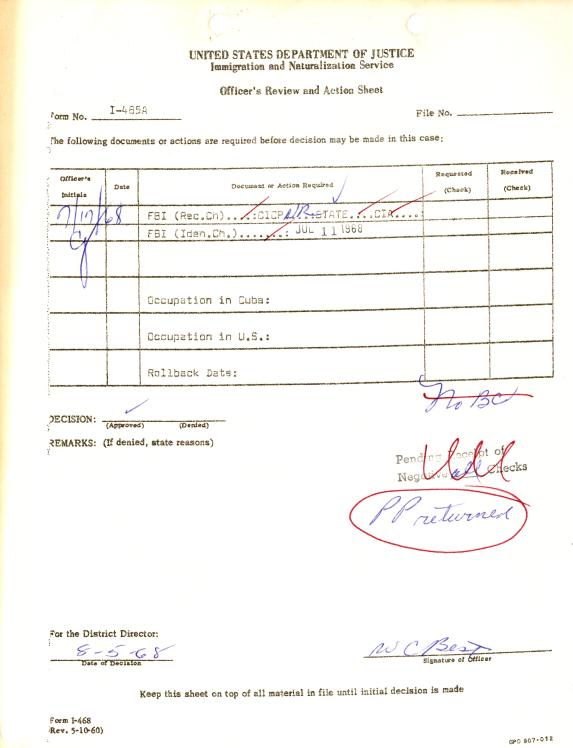 UNITED STATES DEPARTMENT OF JUSTICE
Immigration and Naturalization Service
Officer's Review and Action Sheet
Form No. I-485A File No.
The following documents or actions are required before decision may be made in this case:
Officer's Initials Date Document or Action Required Requested (Check) Received (Check)
7/17/68 FBI (Rec.Ch)....:CICP NR :STATE...:CIA....:
FBI (Iden.Ch.).......: JUL 11 1968
Occupation in Cuba:
Occupation in U.S.:
Rollback Date:
No BC
DECISION:
(Approved) (Denied)
REMARKS: (If denied, state reasons)
Pending Receipt of
Negative all Checks
PP returned
For the District Director:
8-5-68 W C Best
Date of Decision Signature of Officer
Keep this sheet on top of all material in file until initial decision is made
Form I-468
(Rev. 5-10-60)
GPO 907-012